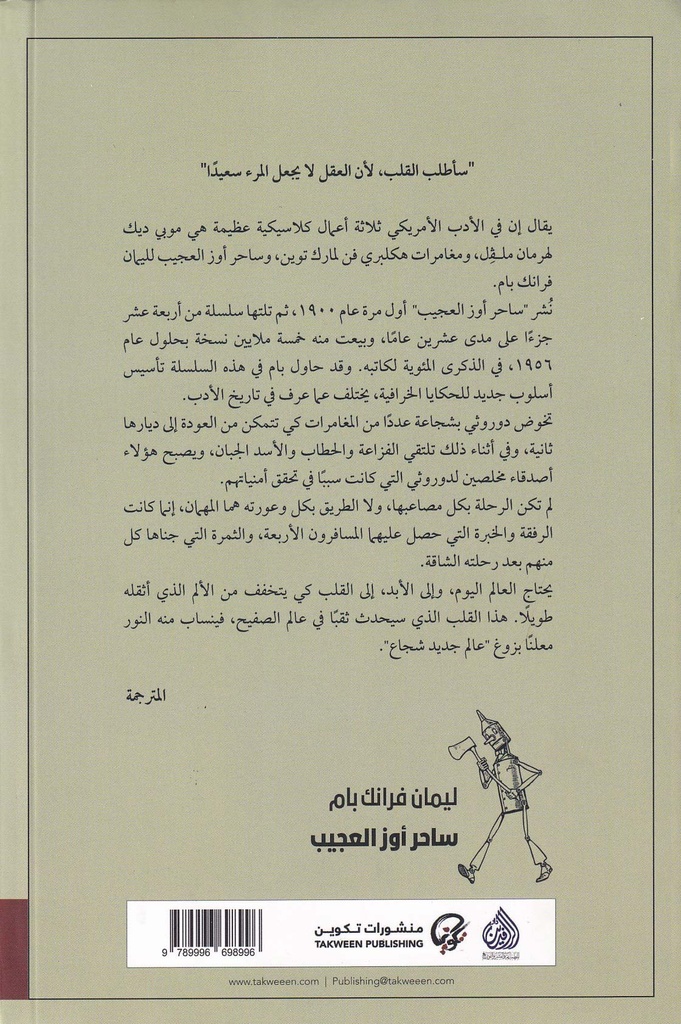 "سأطلب القلب، لأن العقل لا يجعل المرء سعيدًا"
يقال إن في الأدب الأمريكي ثلاثة أعمال كلاسيكية عظيمة هي موبي ديك
لهرمان ملڤِل، ومغامرات هكلبري فن لمارك توين، وساحر أوز العجيب لليمان
فرانك بام.
نُشر "ساحر أوز العجيب" أول مرة عام ١٩٠٠، ثم تلتها سلسلة من أربعة عشر
جزءًا على مدى عشرين عامًا، وبيعت منه خمسة ملايين نسخة بحلول عام
١٩٥٦، في الذكرى المئوية لكاتبه. وقد حاول بام في هذه السلسلة تأسيس
أسلوب جديد للحكايا الخرافية، يختلف عما عرف في تاريخ الأدب.
تخوض دوروثي بشجاعة عددًا من المغامرات كي تتمكن من العودة إلى ديارها
ثانية، وفي أثناء ذلك تلتقي الفزاعة والحطاب والأسد الجبان، ويصبح هؤلاء
أصدقاء مخلصين لدوروثي التي كانت سببًا في تحقق أمنياتهم.
لم تكن الرحلة بكل مصاعبها، ولا الطريق بكل وعورته هما المهمان، إنما كانت
الرفقة والخبرة التي حصل عليهما المسافرون الأربعة، والثمرة التي جناها كل
منهم بعد رحلته الشاقة.
يحتاج العالم اليوم، وإلى الأبد، إلى القلب كي يتخفف من الألم الذي أثقله
طويلًا. هذا القلب الذي سيحدث ثقبًا في عالم الصفيح، فينساب منه النور
معلنًا بزوغ "عالم جديد شجاع".
المترجمة
ليمان فرانك بام
ساحر أوز العجيب
منشورات تكوين
TAKWEEN PUBLISHING
تكوين
الرافدين
9 789996 698996
www.takweeen.com | Publishing@takweeen.com